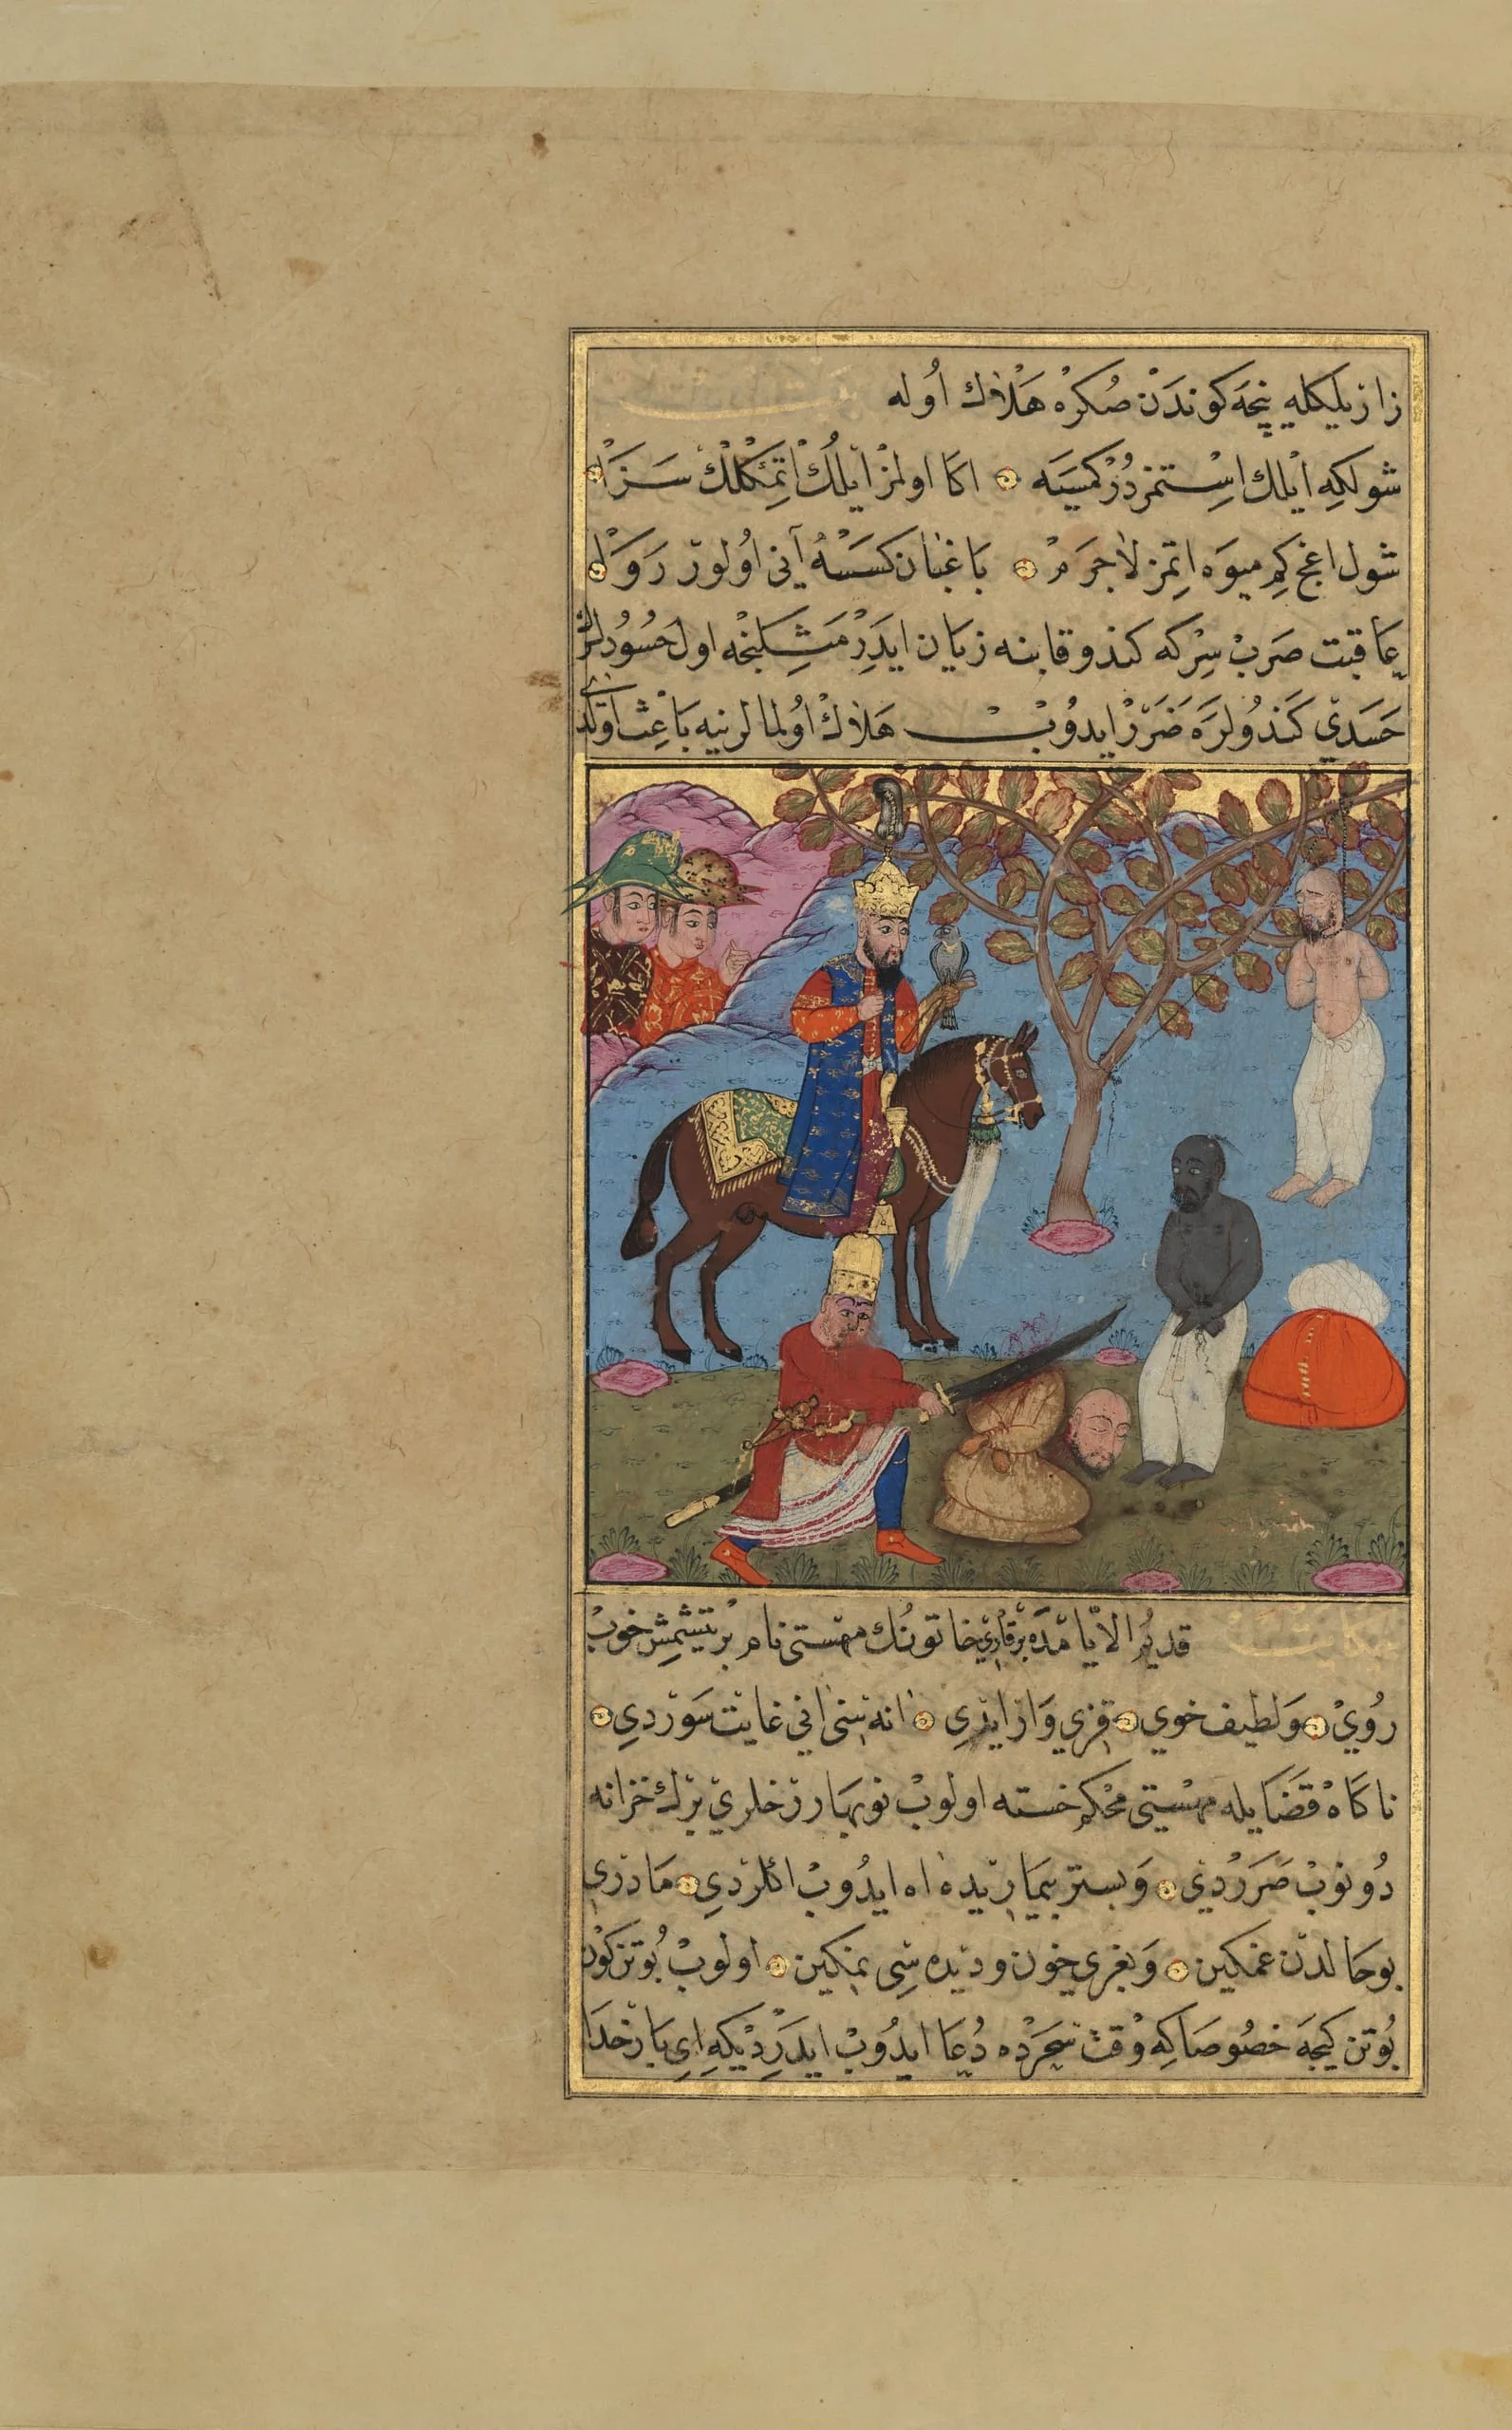 زازيلكله نيجه كوندن صكره هلاك اوله
شولكه ايلك استمز در كمسيه اكا اولمز ايلك اتمكلك سزا
شول اغج كم ميوه اتمز لاجرم باغبان كسسه آنى اولور روا
عاقبت ضرب سركه كندو قابنه زيان ايدر مثلنجه اول حسودلرك
حسدي كندولره ضرر ايدوب هلاك اولمالرينه باعث اولدى
حكايت
قديم الايامده بر قاري خاتونك مهستى نام بر يتشمش خوب
روي ولطيف خوي قزي وار ايدي انه سى انى غايت سوردي
ناكاه قضايله مهستى محكم خسته اولوب نوبهار رخلري برك خزانه
دونوب صرردي وبستر بيماريده اه ايدوب اكلردي مادري
بو حالدن غمكين وبغري خون وديده سى نمكين اولوب بوتون كون
بوتن كيجه خصوصا كه وقت سحرده دعا ايدوب ايدردي كه اي بار خدا